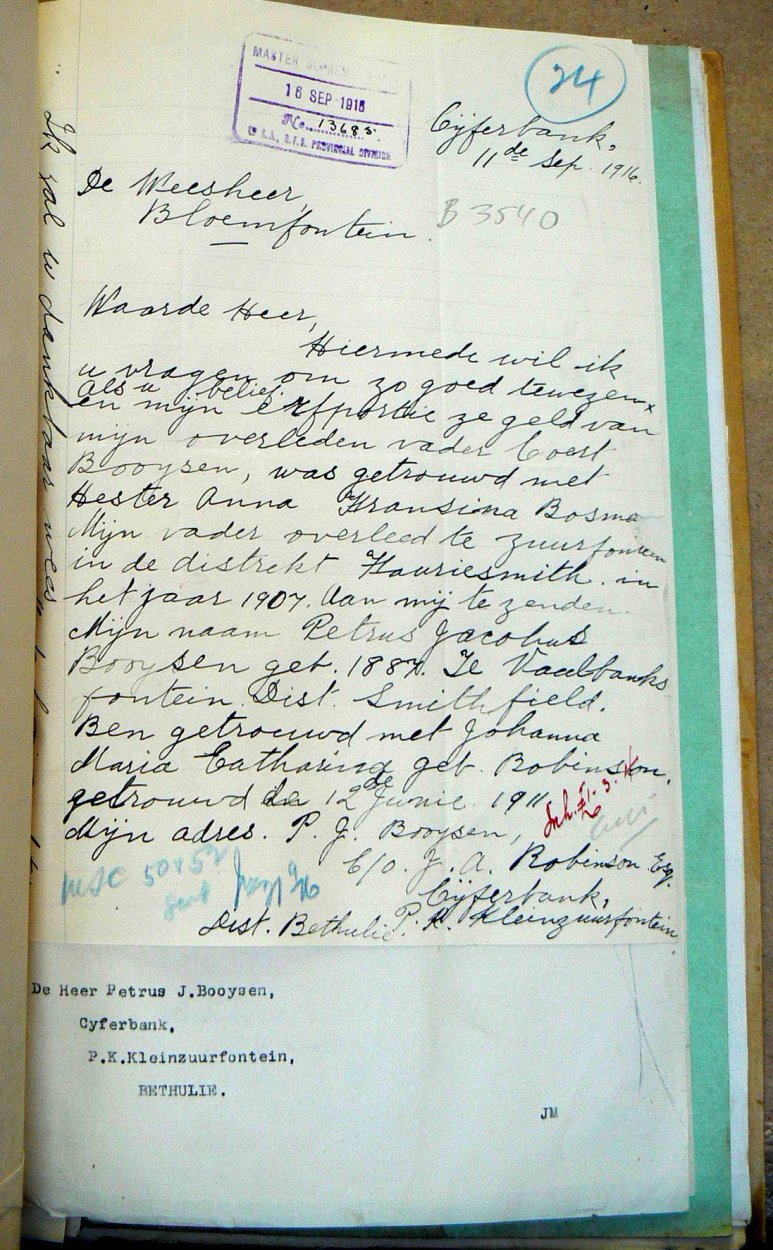 MASTER SUPREME
16 SEP 1916
No. 13685
O.F.S. PROVINCIAL DIVISION
24
Cyferbank,
11de Sep. 1916.
De Weesheer,
Bloemfontein.
B 3540
Waarde Heer,
Hiermede wil ik
u vragen om zo goed tewezen
als u belief.
en mijn erfportie ze geld van
mijn overleden vader Coert
Booysen, was getrouwd met
Hester Anna Fransina Bosma
Mijn vader overleed te Zuurfontein
in de distrekt Fauriesmith. in
het jaar 1907. Aan mij te zenden.
Mijn naam Petrus Jacobus
Booysen geb. 1887. Te Vaalbanks
fontein Dist. Smithfield.
Ben getrouwd met Johanna
Maria Catharina geb. Robinson.
getrouwd de 12de Junie 1911
Mijn adres. P. J. Booysen,
C/O. J. A. Robinson Esq.
Cyferbank,
P. K. Kleinzuurfontein
Dist. Bethulie.
Ik zal u dankbaar wees
Inh.
De Heer Petrus J.Booysen,
Cyferbank,
P.K.Kleinzuurfontein,
BETHULIE.
JM